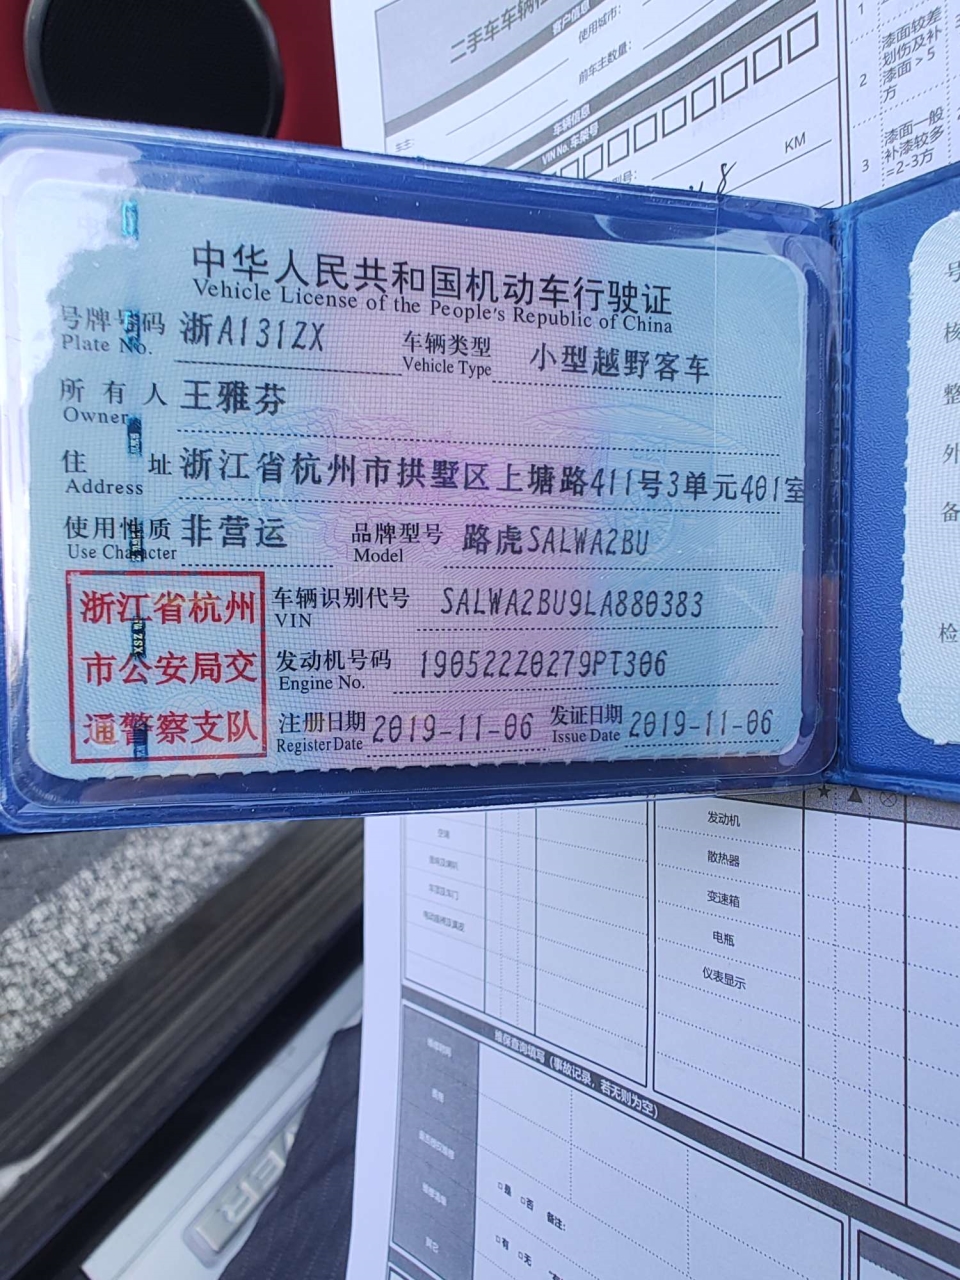 二手车车辆
客户信息
使用城市：
前车主数量：
车主：
车辆信息
VIN No.车架号
KM
1
漆面较差
划伤及补
漆面＞5
方
2
漆面一般
补漆较多
=2-3方
3
中华人民共和国机动车行驶证
Vehicle License of the People's Republic of China
号牌号码 浙A131ZX 车辆类型 小型越野客车
Plate No. Vehicle Type
所有人 王雅芬
Owner
住址 浙江省杭州市拱墅区上塘路411号3单元401室
Address
使用性质 非营运 品牌型号 路虎SALWA2BU
Use Character Model
浙江省杭州
市公安局交
通警察支队
车辆识别代号 SALWA2BU9LA880383
VIN
发动机号码 190522Z0279PT306
Engine No.
注册日期 2019-11-06 发证日期 2019-11-06
Register Date Issue Date
号
核
整
外
备
检
发动机
散热器
变速箱
电瓶
仪表显示
空调
维保查询填写（事故记录，若无则为空）
□是 □否 备注：
□有 □无